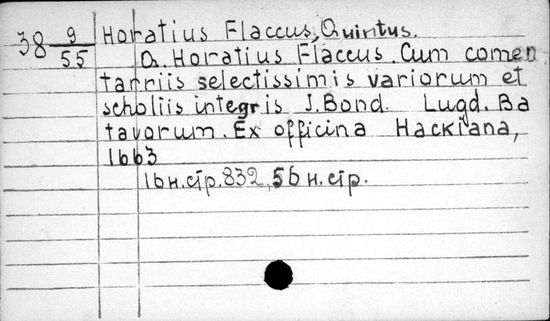 38 9/55 Horatius Flaccus, Quintus.
Q. Horatius Flaccus. Cum comen
tarriis selectissimis variorum et
scholiis integris J. Bond. Lugd. Ba
tavorum. Ex officina Hackiana,
1663
16 н. стр. 832, 56 н. стр.